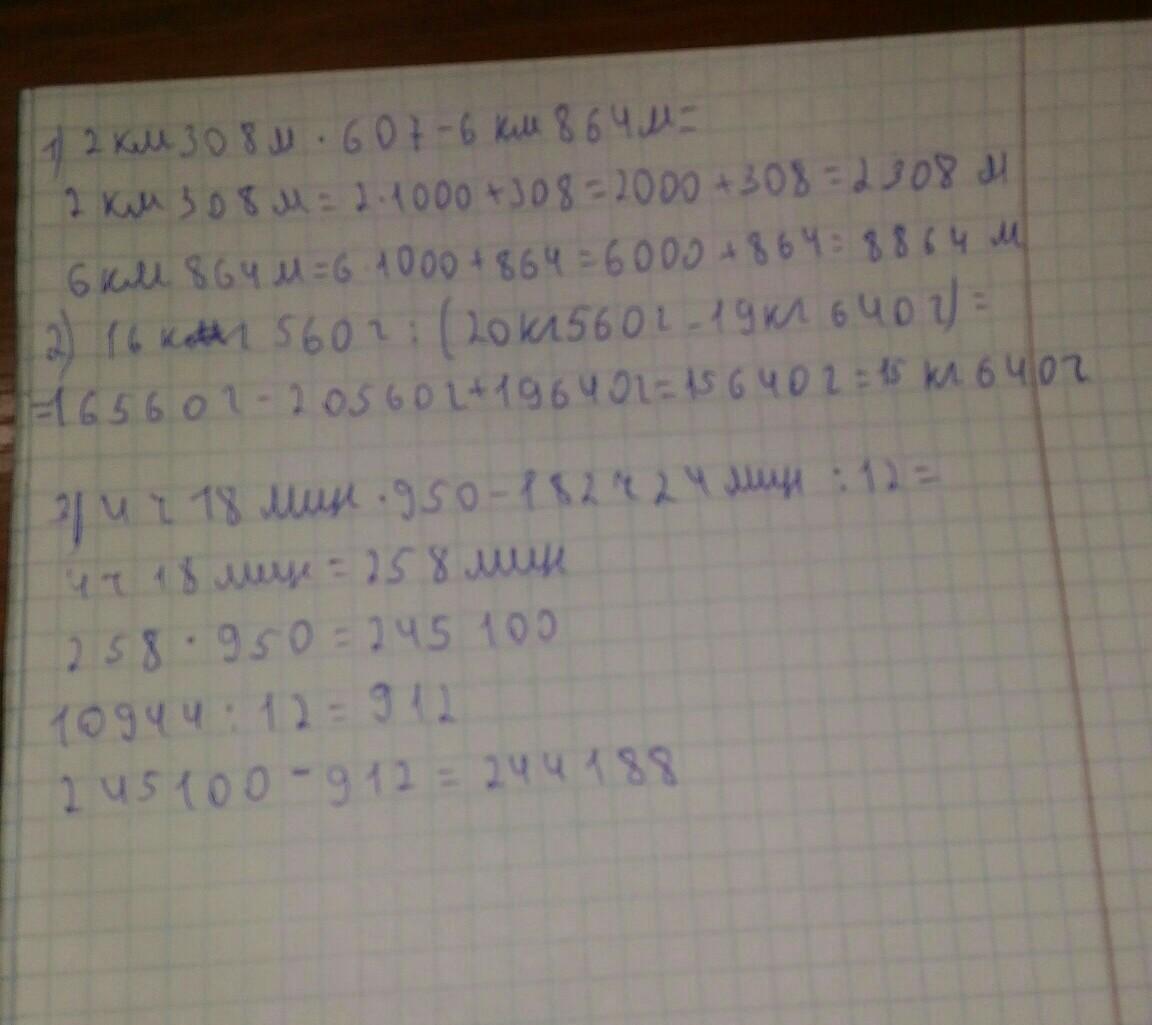 1) 2 км 308 м · 607 - 6 км 864 м =
2 км 308 м = 2 · 1000 + 308 = 2000 + 308 = 2308 м
6 км 864 м = 6 · 1000 + 864 = 6000 + 864 = 8864 м
2) 16 кг 560 г : (20 кг 560 г - 19 кг 640 г) =
= 16560 г - 20560 г + 19640 г = 15640 г = 15 кг 640 г
3) 4 ч 18 мин · 950 - 182 ч 24 мин : 12 =
4 ч 18 мин = 258 мин
258 · 950 = 245 100
10944 : 12 = 912
245100 - 912 = 244188